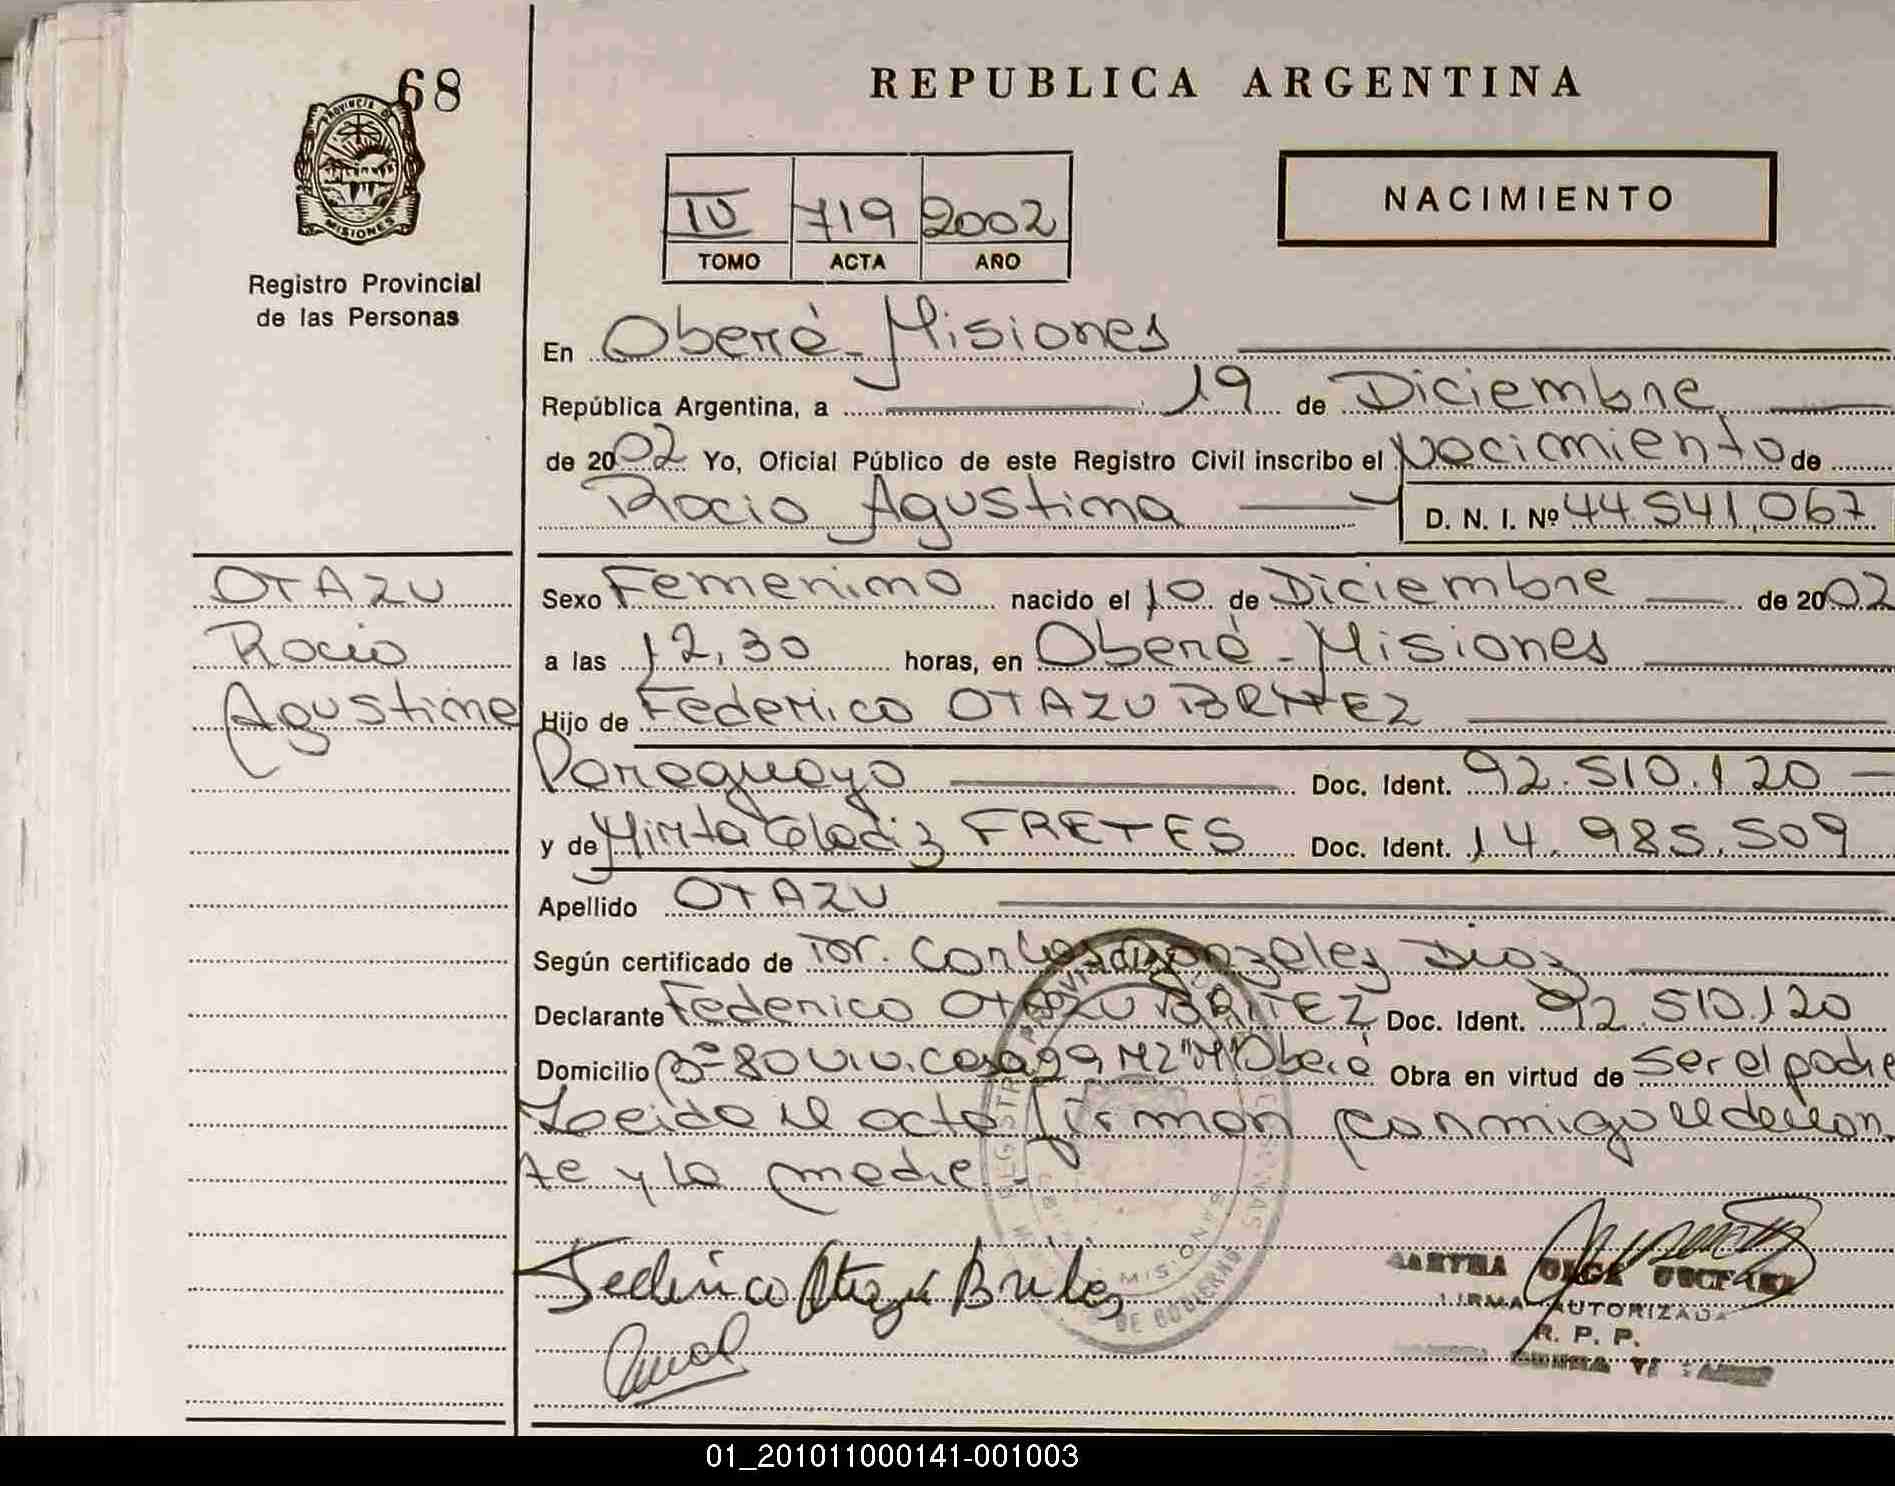 68
REPUBLICA ARGENTINA
PROVINCIA DE
MISIONES
Registro Provincial
de las Personas
IV 719 2002
TOMO ACTA AÑO
NACIMIENTO
En Oberá - Misiones
República Argentina, a 19 de Diciembre
de 2002 Yo, Oficial Público de este Registro Civil inscribo el Nacimiento de
Rocio Agustina D. N. I. Nº 44.541.067
OTAZU
Rocio
Agustina
Sexo Femenino nacido el 10 de Diciembre de 2002
a las 12,30 horas, en Oberá - Misiones
Hijo de Federico OTAZU BRITEZ
Paraguayo Doc. Ident. 92.510.120
y de Mirta Gladiz FRETES Doc. Ident. 14.985.509
Apellido OTAZU
Según certificado de Dr. Carlos Gonzalez Diaz
Declarante Federico OTAZU BRITEZ Doc. Ident. 92.510.120
Domicilio Bº 80 Viv. Casa 99 Mz "M" Oberá Obra en virtud de ser el padre
Leida el acta firman conmigo el declaran
te y la madre.
Federico Otazu Britez
MISIONES
DE GOBIERNO
MARTHA OLGA
FIRMA AUTORIZADA
R. P. P.
01_201011000141-001003